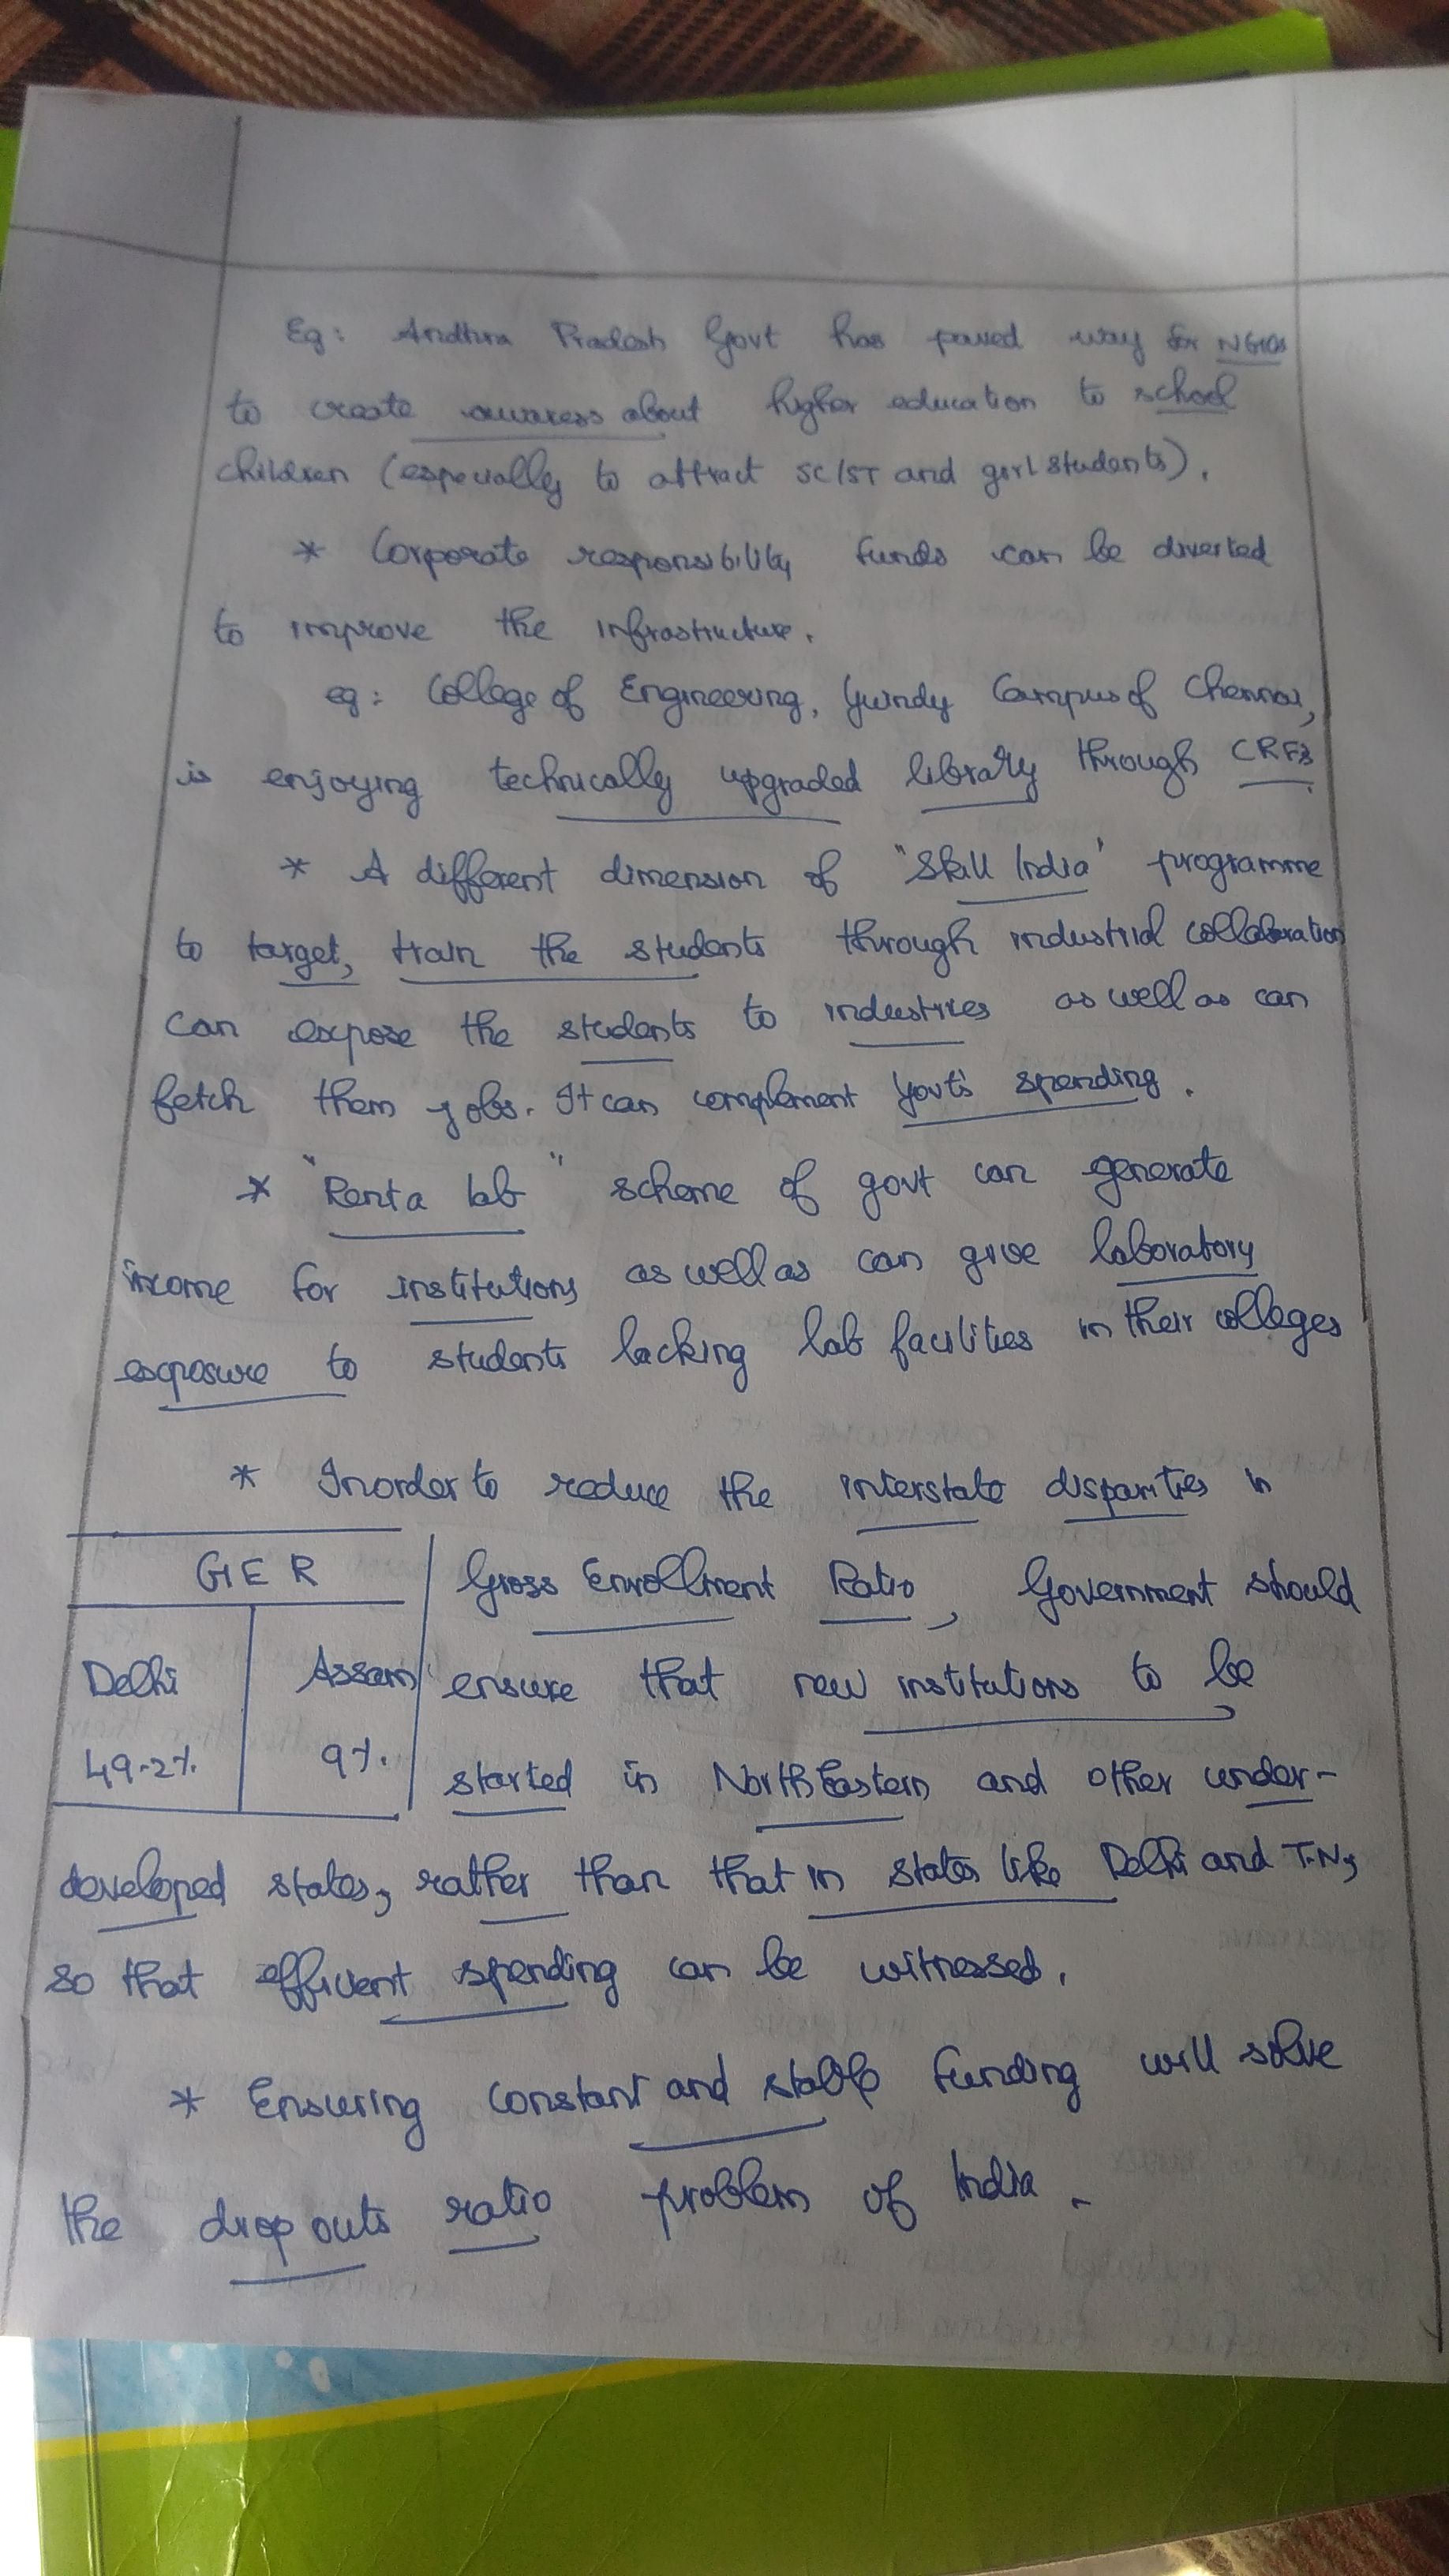 Eg: Andhra Pradesh Govt has paved way for NGOs
to create awaress about higher education to school
children (especially to attract SC/ST and girl students).
* Corporate responsibility funds can be diverted
to improve the infrastructure.
eg: College of Engineering, Guindy Campus of Chennai,
is enjoying technically upgraded library through CRFs.
* A different dimension of "Skill India' programme
to target, train the students through industrial collaboration
can expose the students to industries as well as can
fetch them jobs. It can complement Govt's spending.
* "Rent a lab" scheme of govt can generate
income for institutions as well as can give laboratory
exposure to students lacking lab facilities in their colleges
* Inorder to reduce the interstate disparities in
GER
Delhi Assam
49.2% 9%
Gross Enrollment Ratio, Government should
ensure that new institutions to be
started in North Eastern and other under-
developed states, rather than that in states like Delhi and T.N,
so that efficient spending can be witnessed.
* Ensuring constant and stable funding will solve
the drop outs ratio problem of India.